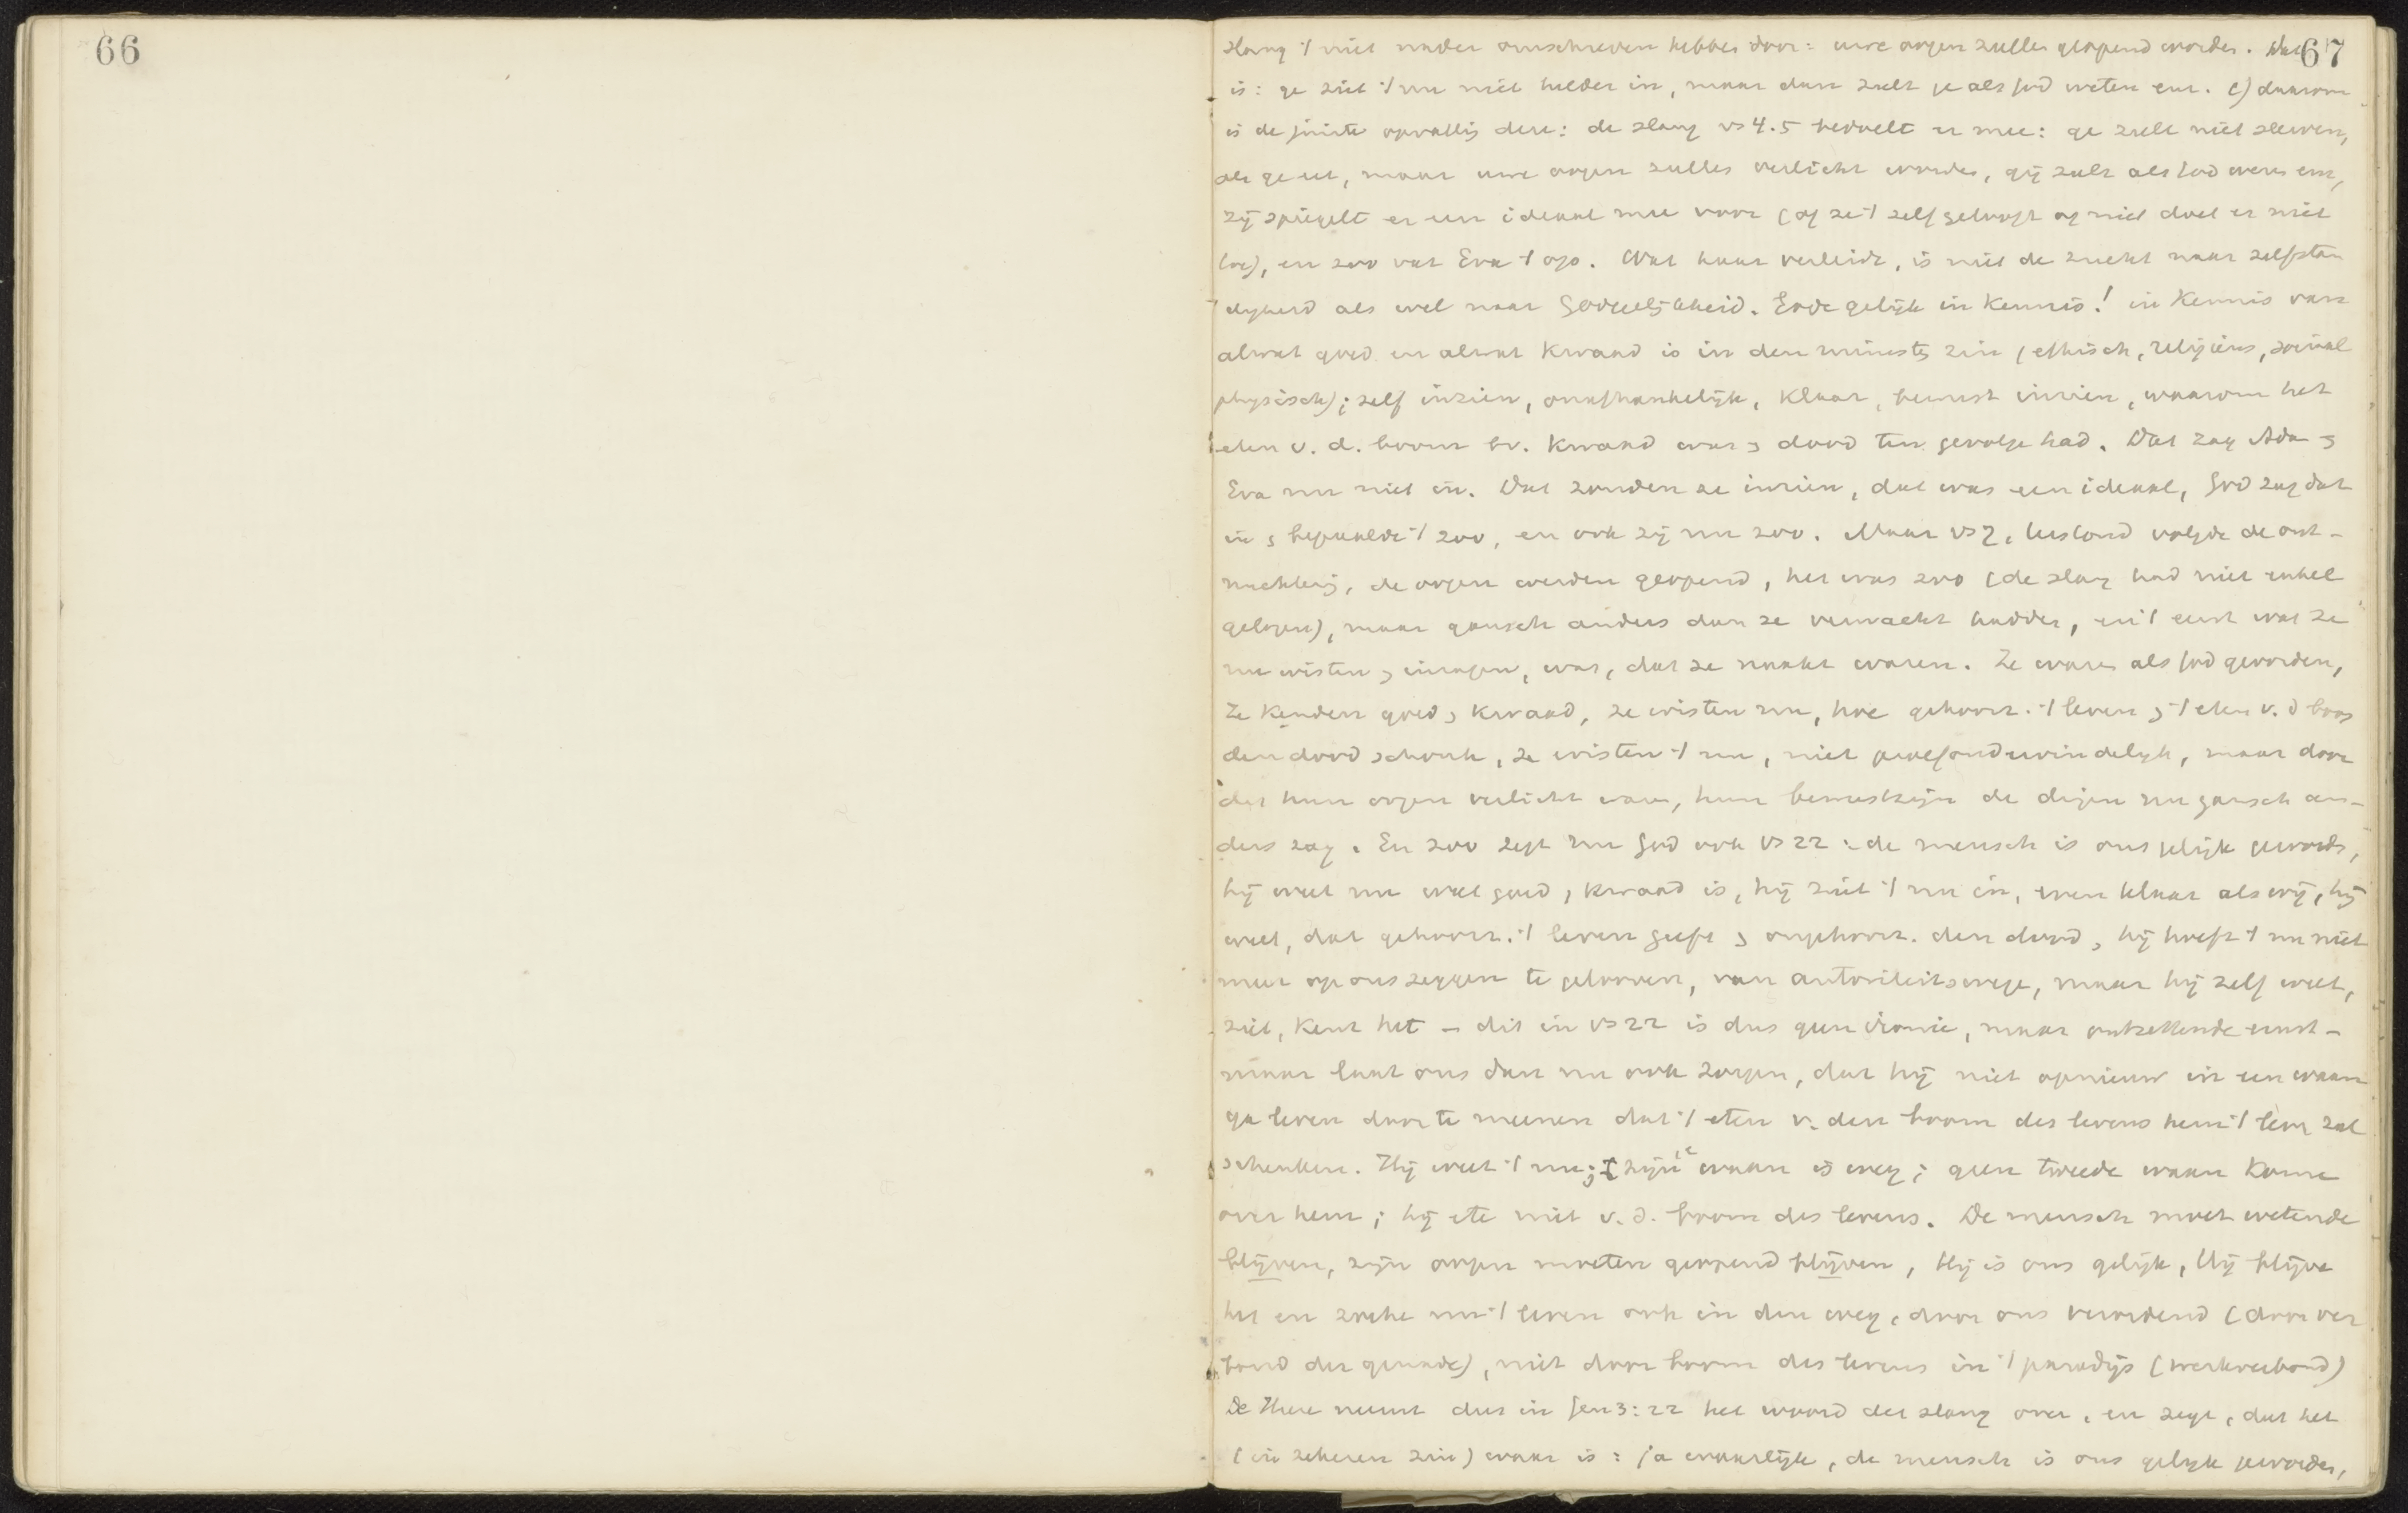 66
67
slang 't niet nader omschreven hebben door: uwe oogen zullen geopend worden. Dat
is: ge ziet 't nu niet helder in, maar dan zult ge als God weten enz. c) daarom
is de juiste opvatting deze: de slang vs 4.5 bedoelt er mee: ge zult niet sterven,
als ge eet, maar uwe oogen zullen verlicht worden, gij zult als God wezen enz,
zij spiegelt er een ideaal mee voor (of ze 't zelf gelooft of niet doet er niet
toe), en zoo vat Eva 't op. Wat haar verleidt, is niet de zucht naar zelfstan
digheid als wel naar Godegelijkheid. Gode gelijk in kennis! in kennis van
alwat goed en alwat kwaad is in den ruimsten zin (ethisch, religieus, sociaal
physisch); zelf inzien, onafhankelijk, klaar, bewust inzien, waarom het
eten v. d. boom bv. kwaad was en dood ten gevolge had. Dat zag Adam en
Eva nu niet in. Dat zouden ze inzien, dat was een ideaal, God zag dat
in en bepaalde 't zoo, en ook zij nu zoo. Maar vs 7, terstond volgde de ont-
nuchtering, de oogen werden geopend, het was zoo (de slang had niet enkel
gelogen), maar gansch anders dan ze verwacht hadden, en 't eerst wat ze
nu wisten en inzagen, was, dat ze naakt waren. Ze waren als God geworden,
Ze kenden goed en kwaad, ze wisten nu, hoe gehoorz. 't leven en 't eten v. d boom
den dood schonk, ze wisten 't nu, niet proefondervindelijk, maar door
dat hun oogen verlicht waren, hun bewustzijn de dingen nu gansch an-
ders zag. En zoo zegt nu God ook vs 22: de mensch is ons gelijk geworden,
hij weet nu wat goed en kwaad is, hij ziet 't nu in, even klaar als wij, hij
weet, dat gehoorz. 't leven geeft en ongehoorz. den dood, hij hoeft 't nu niet
meer op ons zeggen te gelooven, van autoriteitswege, maar hij zelf weet,
ziet, kent het - dit in vs 22 is dus geen ironie, maar ontzettende ernst -
maar laat ons dan nu ook zorgen, dat hij niet opnieuw in een waan
ga leven door te meenen dat 't eten v. den boom des levens hem 't leven zal
schenken. Hij weet 't nu; zijn 1e waan is weg; geen tweede waan kome
over hem; hij ete niet v. d. boom des levens. De mensch moet wetende
blijven, zijn oogen moeten geopend blijven, Hij is ons gelijk, Hij blijve
het en zoeke nu 't leven ook in den weg, door ons verordend (door ver
bond der genade), niet door boom des levens in 't paradijs (werkverbond)
De Heere neemt dus in Gen 3:22 het woord der slang over, en zegt, dat het
(in zekeren zin) waar is: ja waarlijk, de mensch is ons gelijk geworden,